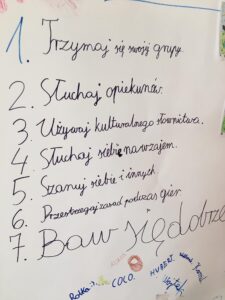 1. Trzymaj się swojej grupy.
2. Słuchaj opiekunów.
3. Używaj kulturalnego słownictwa.
4. Słuchaj siebie nawzajem.
5. Szanuj siebie i innych
6. Przestrzegaj zasad podczas gier
7. Baw się dobrze
COCO. HUBERT